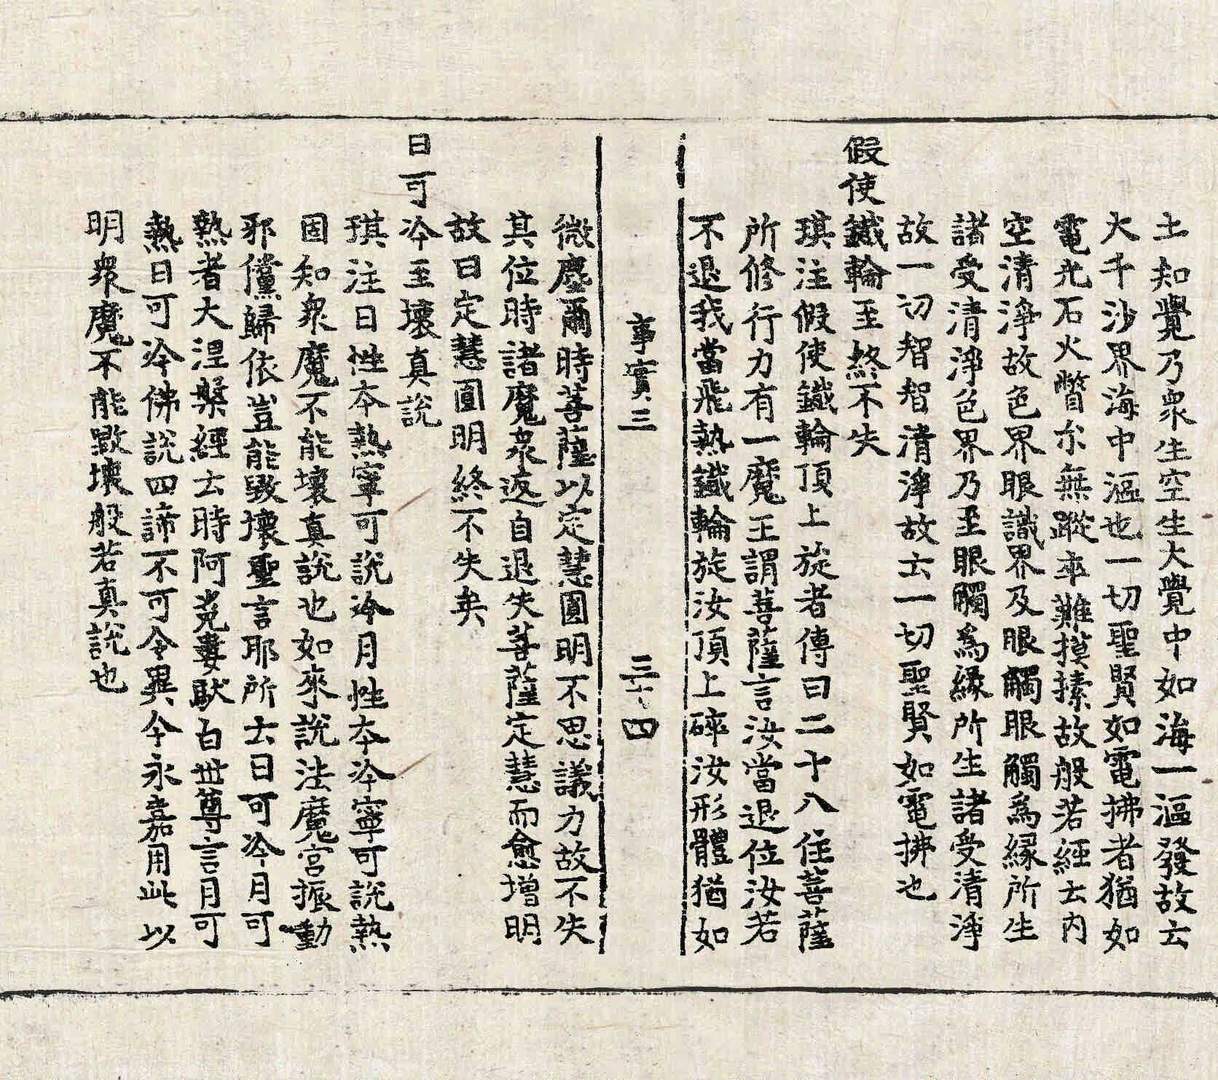 土知覺乃衆生空生大覺中如海一漚發故云
大千沙界海中漚也一切聖賢如電拂者猶如
電光石火瞥尔無蹤卒難摸𢱢故般若經云內
空清淨故色界眼識界及眼觸眼觸為緣所生
諸受清淨色界乃至眼觸為緣所生諸受清淨
故一切智智清淨故云一切聖賢如電拂也
假使鐵輪至終不失
琪注假使鐵輪頂上旋者傳曰二十八住菩薩
所修行力有一魔王謂菩薩言汝當退位汝若
不退我當飛熱鐵輪旋汝頂上碎汝形體猶如
事實三 三十四
微塵爾時菩薩以定慧圓明不思議力故不失
其位時諸魔衆返自退失菩薩定慧而愈增明
故曰定慧圓明終不失矣
日可冷至壞真說
琪注日性本熱寧可說冷月性本冷寧可說熱
固知衆魔不能壞真說也如來說法魔宮振動
邪儻歸依豈能毀壞聖言耶所云日可冷月可
熱者大涅槃經云時阿㝹婁馱白世尊言月可
熱日可冷佛說四諦不可令異今永嘉用此以
明衆魔不能毀壞般若真說也